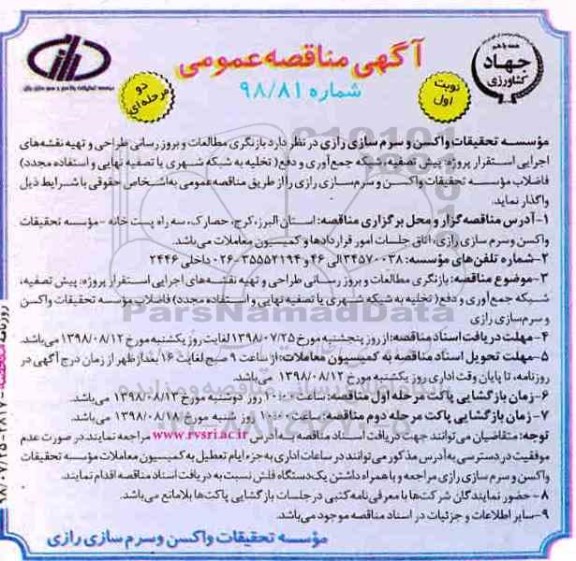 همه با هم
جهاد
کشاورزی
آگهی مناقصه عمومی
شماره ۹۸/۸۱
نوبت
اول
دو
مرحله‌ای
مؤسسه تحقیقات واکسن و سرم سازی رازی در نظر دارد بازنگری مطالعات و بروز رسانی طراحی و تهیه نقشه‌های
اجرایی استقرار پروژه: پیش تصفیه، شبکه جمع‌آوری و دفع( تخلیه به شبکه شهری یا تصفیه نهایی و استفاده مجدد)
فاضلاب مؤسسه تحقیقات واکسن و سرم‌سازی رازی را از طریق مناقصه عمومی به اشخاص حقوقی با شرایط ذیل
واگذار نماید.
۱-آدرس مناقصه‌گزار و محل برگزاری مناقصه: استان البرز، کرج، حصارک، سه راه پست خانه -مؤسسه تحقیقات
واکسن و سرم سازی رازی، اتاق جلسات امور قراردادها و کمیسیون معاملات می‌باشد.
۲-شماره تلفن‌های مؤسسه: ۳۴۵۷۰۰۳۸الی ۴۶ و ۳۵۵۵۲۱۹۴-۰۲۶ داخلی ۲۴۴۶
۳-موضوع مناقصه: بازنگری مطالعات و بروز رسانی طراحی و تهیه نقشه‌های اجرایی استقرار پروژه: پیش تصفیه،
شبکه جمع‌آوری و دفع( تخلیه به شبکه شهری یا تصفیه نهایی و استفاده مجدد) فاضلاب مؤسسه تحقیقات واکسن
و سرم‌سازی رازی
۴-مهلت دریافت اسناد مناقصه: از روز پنجشنبه مورخ ۱۳۹۸/۰۷/۲۵ لغایت روز یکشنبه مورخ ۱۳۹۸/۰۸/۱۲ می‌باشد.
۵-مهلت تحویل اسناد مناقصه به کمیسیون معاملات: از ساعت ۹ صبح لغایت ۱۶ بعدازظهر از زمان درج آگهی در
روزنامه، تا پایان وقت اداری روز یکشنبه مورخ ۱۳۹۸/۰۸/۱۲ می‌باشد.
۶-زمان بازگشایی پاکت مرحله اول مناقصه: ساعت ۱۰:۰۰ روز دوشنبه مورخ ۱۳۹۸/۰۸/۱۳ می‌باشد.
۷-زمان بازگشایی پاکت مرحله دوم مناقصه: ساعت ۱۰:۰۰ روز شنبه مورخ ۱۳۹۸/۰۸/۱۸ می‌باشد.
توجه: متقاضیان می‌توانند جهت دریافت اسناد مناقصه به آدرس www.rvsri.ac.ir مراجعه نمایند در صورت عدم
موفقیت در دسترسی به آدرس مذکور می‌توانند در ساعات اداری به جزء ایام تعطیل به کمیسیون معاملات مؤسسه تحقیقات
واکسن و سرم سازی رازی مراجعه و با همراه داشتن یک دستگاه فلش نسبت به دریافت اسناد مناقصه اقدام نمایند.
۸-حضور نمایندگان شرکت‌ها با معرفی نامه کتبی در جلسات بازگشایی پاکت‌ها بلامانع می‌باشد.
۹-سایر اطلاعات و جزئیات در اسناد مناقصه موجود می‌باشد.
مؤسسه تحقیقات واکسن و سرم سازی رازی
ParsNamadData